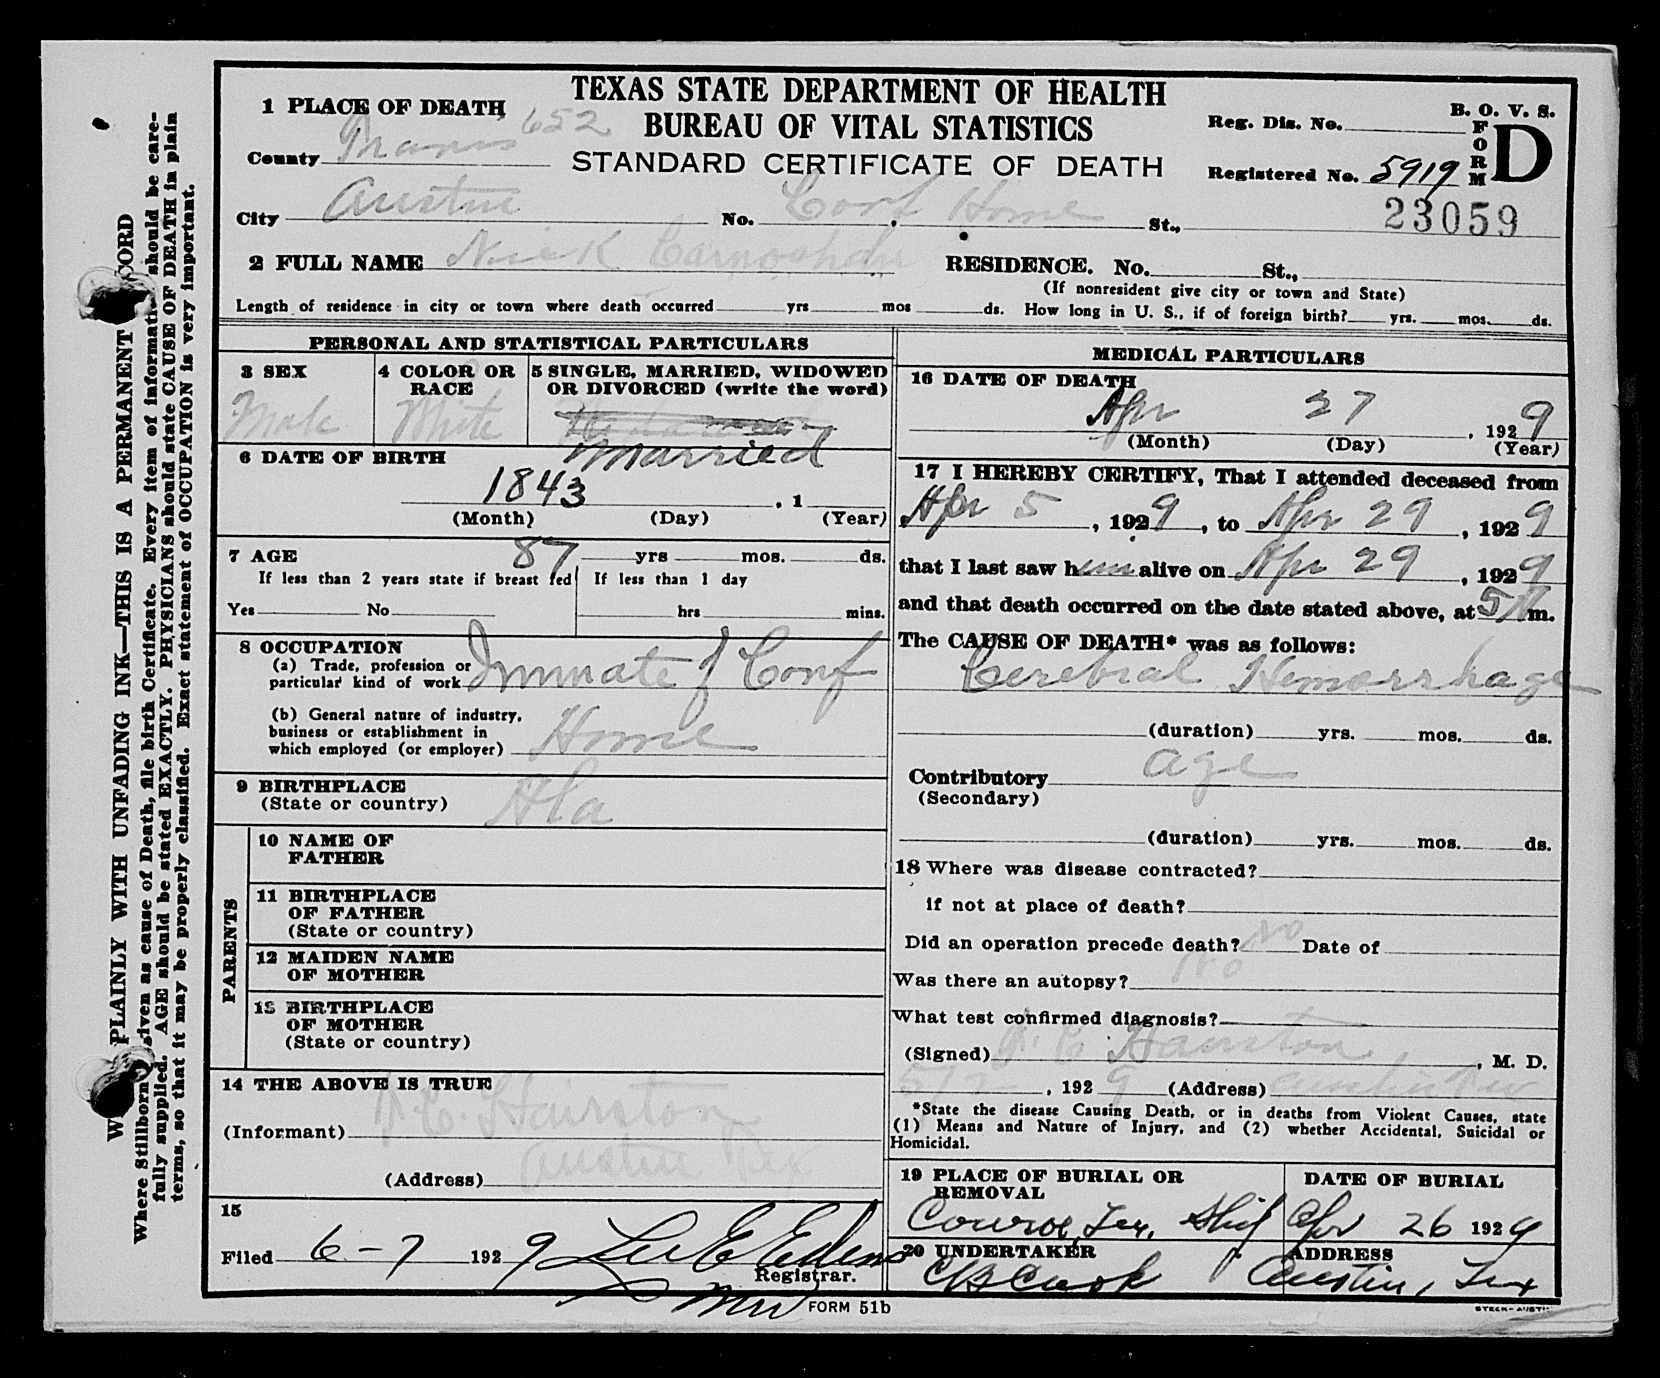 TEXAS STATE DEPARTMENT OF HEALTH
BUREAU OF VITAL STATISTICS
STANDARD CERTIFICATE OF DEATH
B. O. V. S.
FORM D
Reg. Dis. No.
Registered No. 5919
23059
1 PLACE OF DEATH
652
County Travis
City Austin No. Conf. Home St.,
2 FULL NAME Nick
RESIDENCE. No. St.,
(If nonresident give city or town and State)
Length of residence in city or town where death occurred yrs mos ds. How long in U. S., if of foreign birth? yrs. mos. ds.
PERSONAL AND STATISTICAL PARTICULARS
3 SEX
Male
4 COLOR OR RACE
White
5 SINGLE, MARRIED, WIDOWED
OR DIVORCED (write the word)
Married
6 DATE OF BIRTH
1843 , 1
(Month) (Day) (Year)
7 AGE 87 yrs mos. ds.
If less than 2 years state if breast fed
Yes No
If less than 1 day
hrs mins.
8 OCCUPATION
(a) Trade, profession or
particular kind of work Inmate of Conf
(b) General nature of industry,
business or establishment in
which employed (or employer) Home
9 BIRTHPLACE
(State or country) Ala
PARENTS
10 NAME OF
FATHER
11 BIRTHPLACE
OF FATHER
(State or country)
12 MAIDEN NAME
OF MOTHER
13 BIRTHPLACE
OF MOTHER
(State or country)
14 THE ABOVE IS TRUE
(Informant) Hairston
(Address) Austin Tex
15
Filed 6-7 1929 Lee E Edens
Registrar.
MW
MEDICAL PARTICULARS
16 DATE OF DEATH
Apr 27 , 1929
(Month) (Day) (Year)
17 I HEREBY CERTIFY, That I attended deceased from
Apr 5 , 1929, to Apr 29 , 1929
that I last saw him alive on Apr 29 , 1929
and that death occurred on the date stated above, at 5 A m.
The CAUSE OF DEATH* was as follows:
Cerebral Hemorrhage
(duration) yrs. mos. ds.
Contributory Age
(Secondary)
(duration) yrs. mos. ds.
18 Where was disease contracted?
if not at place of death?
Did an operation precede death? No Date of
Was there an autopsy? No
What test confirmed diagnosis?
(Signed) Hairston , M. D.
, 1929 (Address) Austin Tex
*State the disease Causing Death, or in deaths from Violent Causes, state
(1) Means and Nature of Injury, and (2) whether Accidental, Suicidal or
Homicidal.
19 PLACE OF BURIAL OR
REMOVAL
Conroe, Tex. Ship
DATE OF BURIAL
Apr 26 1929
20 UNDERTAKER
C B Cook
ADDRESS
Austin, Tex
FORM 51b
STECK-AUSTIN
WRITE PLAINLY WITH UNFADING INK—THIS IS A PERMANENT RECORD
Where Stillborn is given as cause of Death, file birth Certificate. Every item of information should be care-
fully supplied. AGE should be stated EXACTLY. PHYSICIANS should state CAUSE OF DEATH in plain
terms, so that it may be properly classified. Exact statement of OCCUPATION is very important.